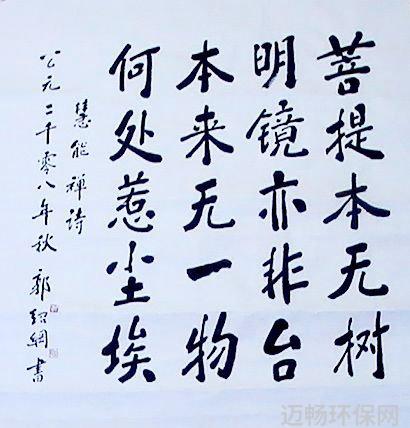 菩提本无树
明镜亦非台
本来无一物
何处惹尘埃
慧能禅诗
公元二千零八年秋 郭绍纲书
迈畅环保网